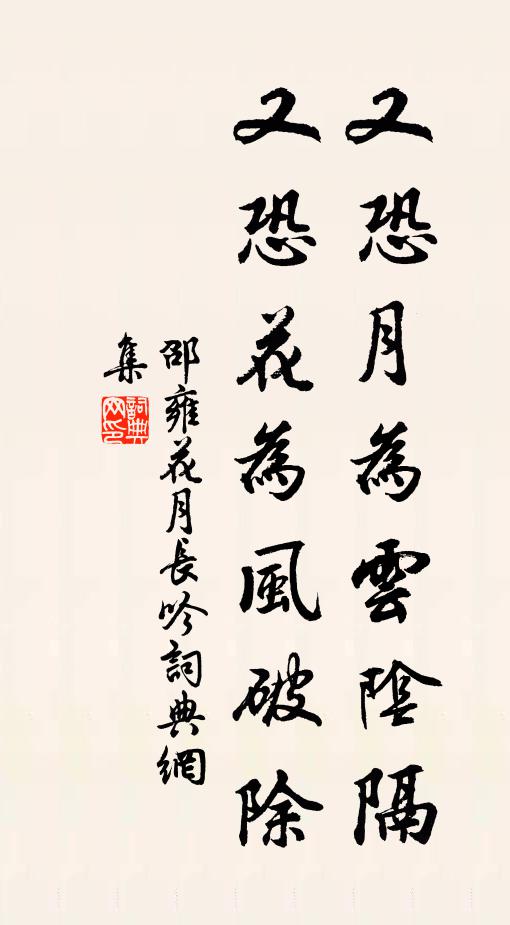 又恐月為雲陰隔
又恐花為風破除
邵雍花月長吟詞典網
集
詞典
网印